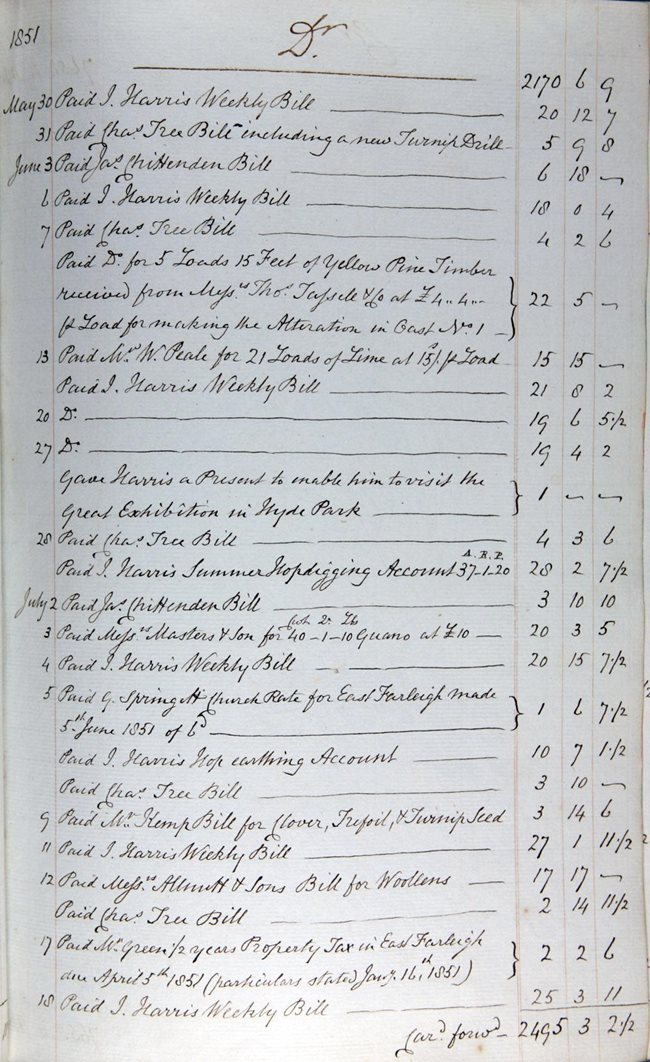 1851
Dr.
2170 6 9
May 30 Paid I. Harris Weekly Bill 20 12 7
31 Paid Chas. Tree Bill including a new Turnip Drill 5 9 8
June 3 Paid Jas. Chittenden Bill 6 18 —
6 Paid I. Harris Weekly Bill 18 0 4
7 Paid Chas. Tree Bill 4 2 6
Paid Do. for 5 Loads 15 Feet of Yellow Pine Timber
received from Messrs. Thos. Tassell & Co at £4..4..- 22 5 —
p Load for making the Alteration in Oast No. 1
13 Paid Mr. W. Peale for 21 Loads of Lime at 15s/ p Load 15 15 —
Paid I. Harris Weekly Bill 21 8 2
20 Do. 19 6 5 1/2
27 Do. 19 4 2
Gave Harris a Present to enable him to visit the
Great Exhibition in Hyde Park 1 — —
28 Paid Chas. Tree Bill 4 3 6
A. R. P.
Paid I. Harris Summer Hopdigging Account 37-1-20 28 2 7 1/2
July 2 Paid Jas. Chittenden Bill 3 10 10
Cwt. Qr. lb
3 Paid Messrs Masters & Son for 40-1-10 Guano at £10 20 3 5
4 Paid I. Harris Weekly Bill 20 15 7 1/2
5 Paid G. Springett Church Rate for East Farleigh made
5th June 1851 of 6d 1 6 7 1/2
Paid I. Harris Hop earthing Account 10 7 1 1/2
Paid Chas. Tree Bill 3 10 —
9 Paid Mr. Kemp Bill for Clover, Trefoil, & Turnip Seed 3 14 6
11 Paid I. Harris Weekly Bill 27 1 11 1/2
12 Paid Messrs Allnutt & Sons Bill for Woollens 17 17 —
Paid Chas. Tree Bill 2 14 11 1/2
17 Paid Mr. Green 1/2 years Property Tax in East Farleigh
due April 5th 1851 (particulars stated Jany. 16th 1851) 2 2 6
18 Paid I. Harris Weekly Bill 25 3 11
Card. forwd 2495 3 2 1/2